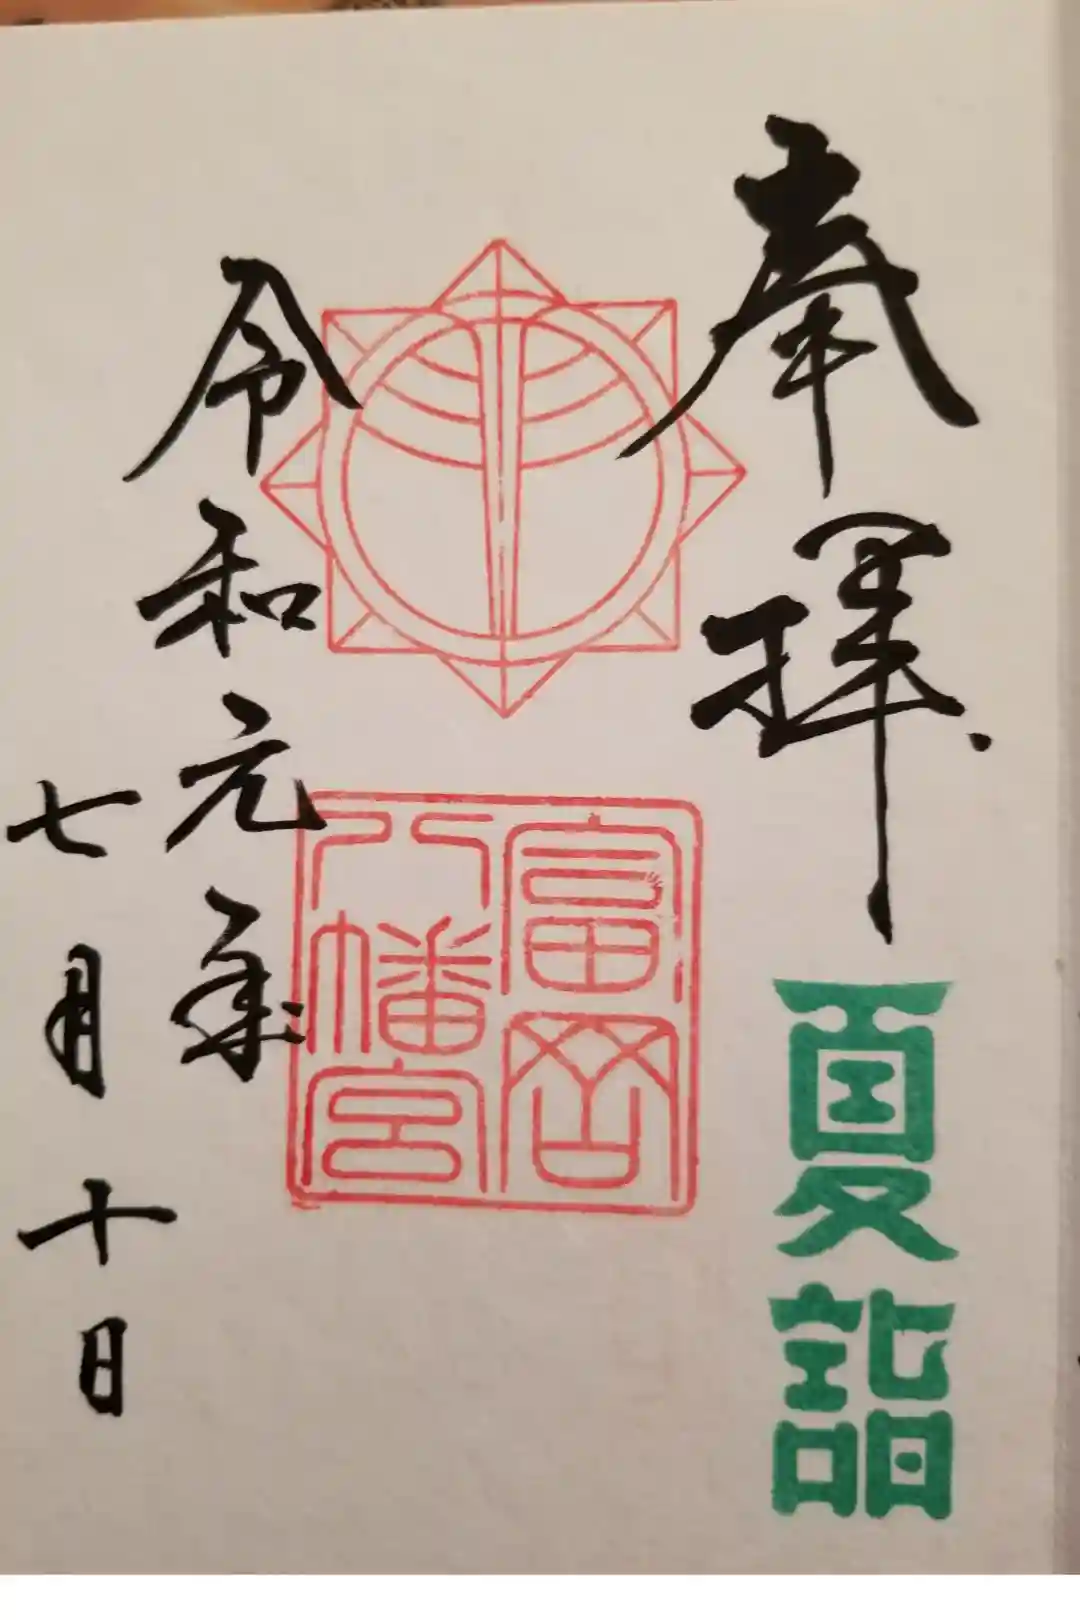 奉拝
夏詣
富岡
八幡宮
令和元年
七月十日